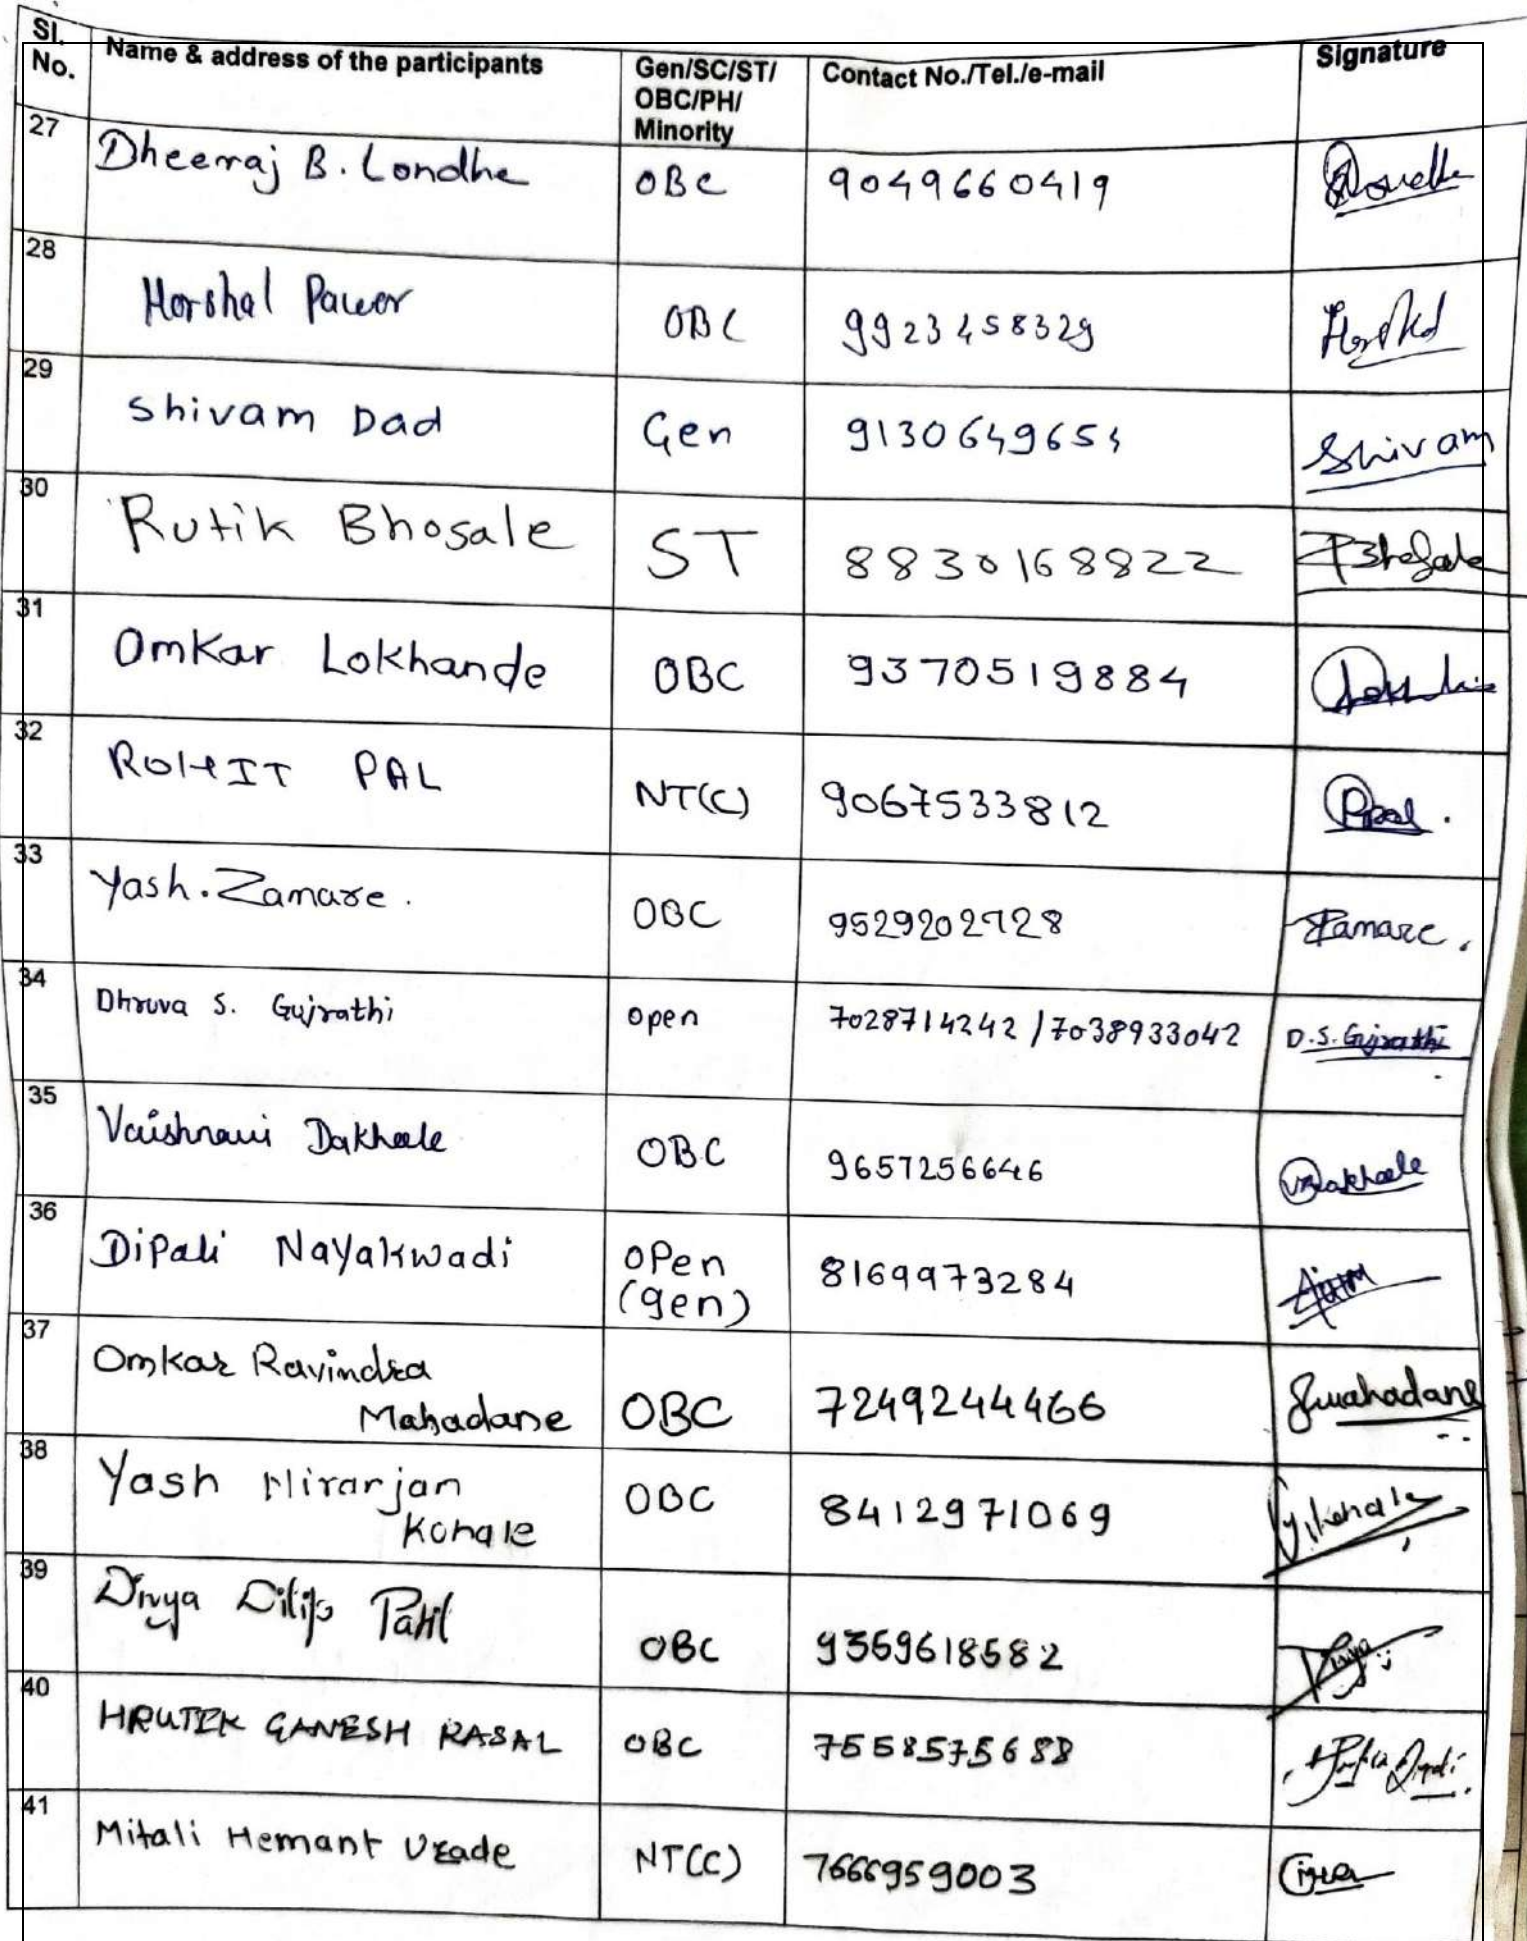 Sl. No. Name & address of the participants Gen/SC/ST/ OBC/PH/ Minority Contact No./Tel./e-mail Signature
27 Dheeraj B. Londhe OBC 9049660419
28 Harshal Pawar OBC 9923458329 Harshal
29 Shivam Dad Gen 9130649654 Shivam
30 Rutik Bhosale ST 8830168822 Bhosale
31 Omkar Lokhande OBC 9370519884
32 ROHIT PAL NT(C) 9067533812 Pal.
33 Yash. Zamare. OBC 9529202728 Zamare.
34 Dhruva S. Gujrathi open 7028714242 / 7038933042 D.S. Gujrathi
35 Vaishnavi Dakhole OBC 9657256646
36 Dipali Nayakwadi open (gen) 8169973284
37 Omkar Ravindra
Mahadane OBC 7249244466
38 Yash Niranjan
Kohale OBC 8412971069
39 Divya Dilip Patil OBC 9359618582
40 HRUTIK GANESH RASAL OBC 7558575688
41 Mitali Hemant Urade NT(C) 7666959003